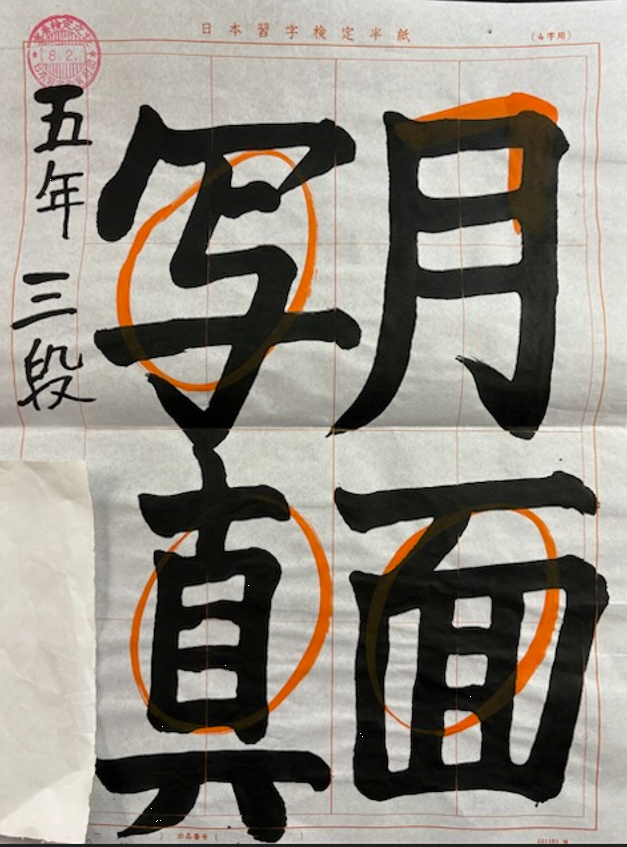 日本習字検定半紙
(4字用)
月面
写真
五年 三段
8.2.
出品番号 (